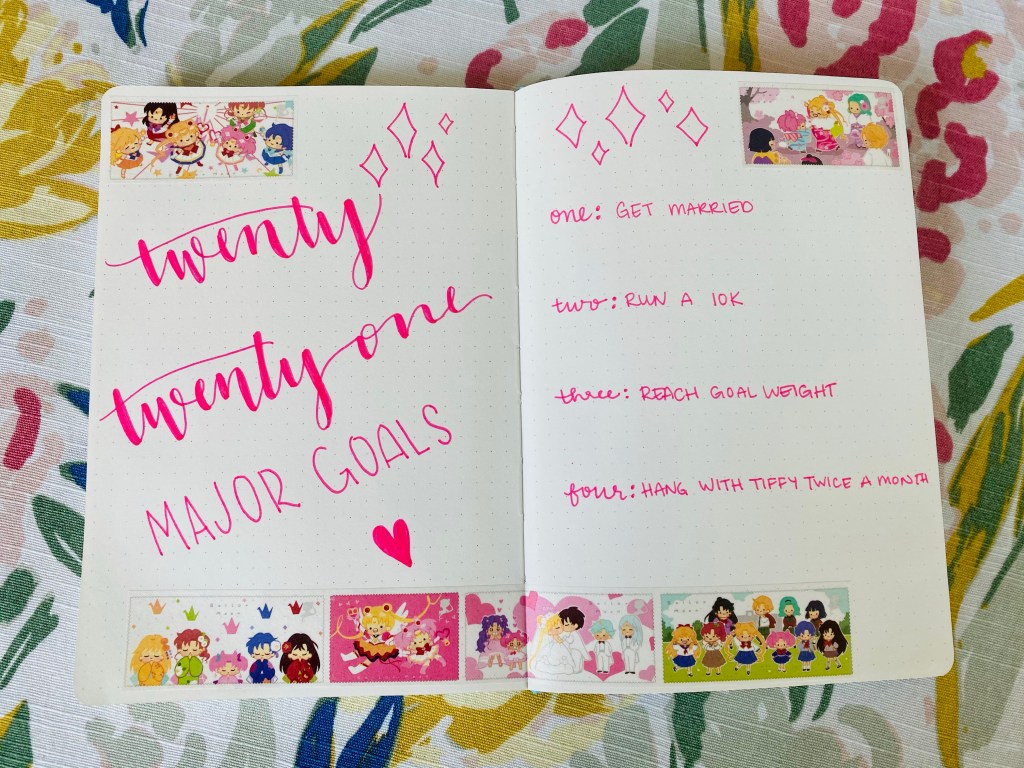 twenty
twenty one
MAJOR GOALS
one: GET MARRIED
two: RUN A 10K
three: REACH GOAL WEIGHT
four: HANG WITH TIFFY TWICE A MONTH